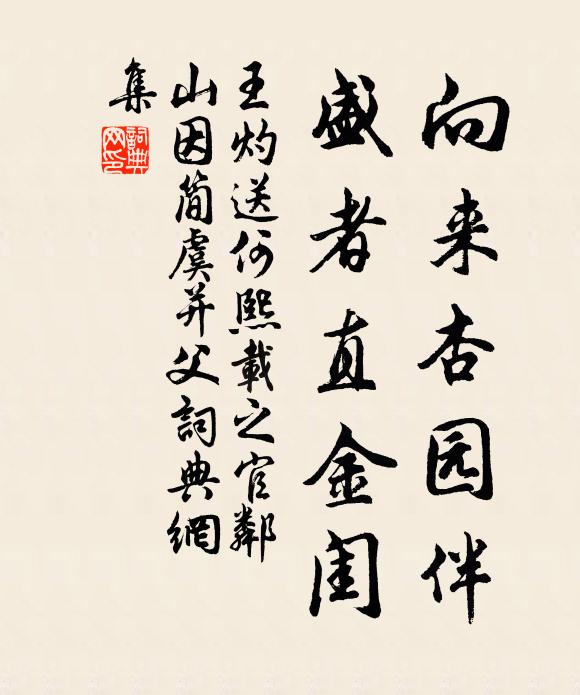 向来杏园伴
盛者直金闺
王灼送何熙載之官鄰
山因简虞并父詞典網
集
詞典網印